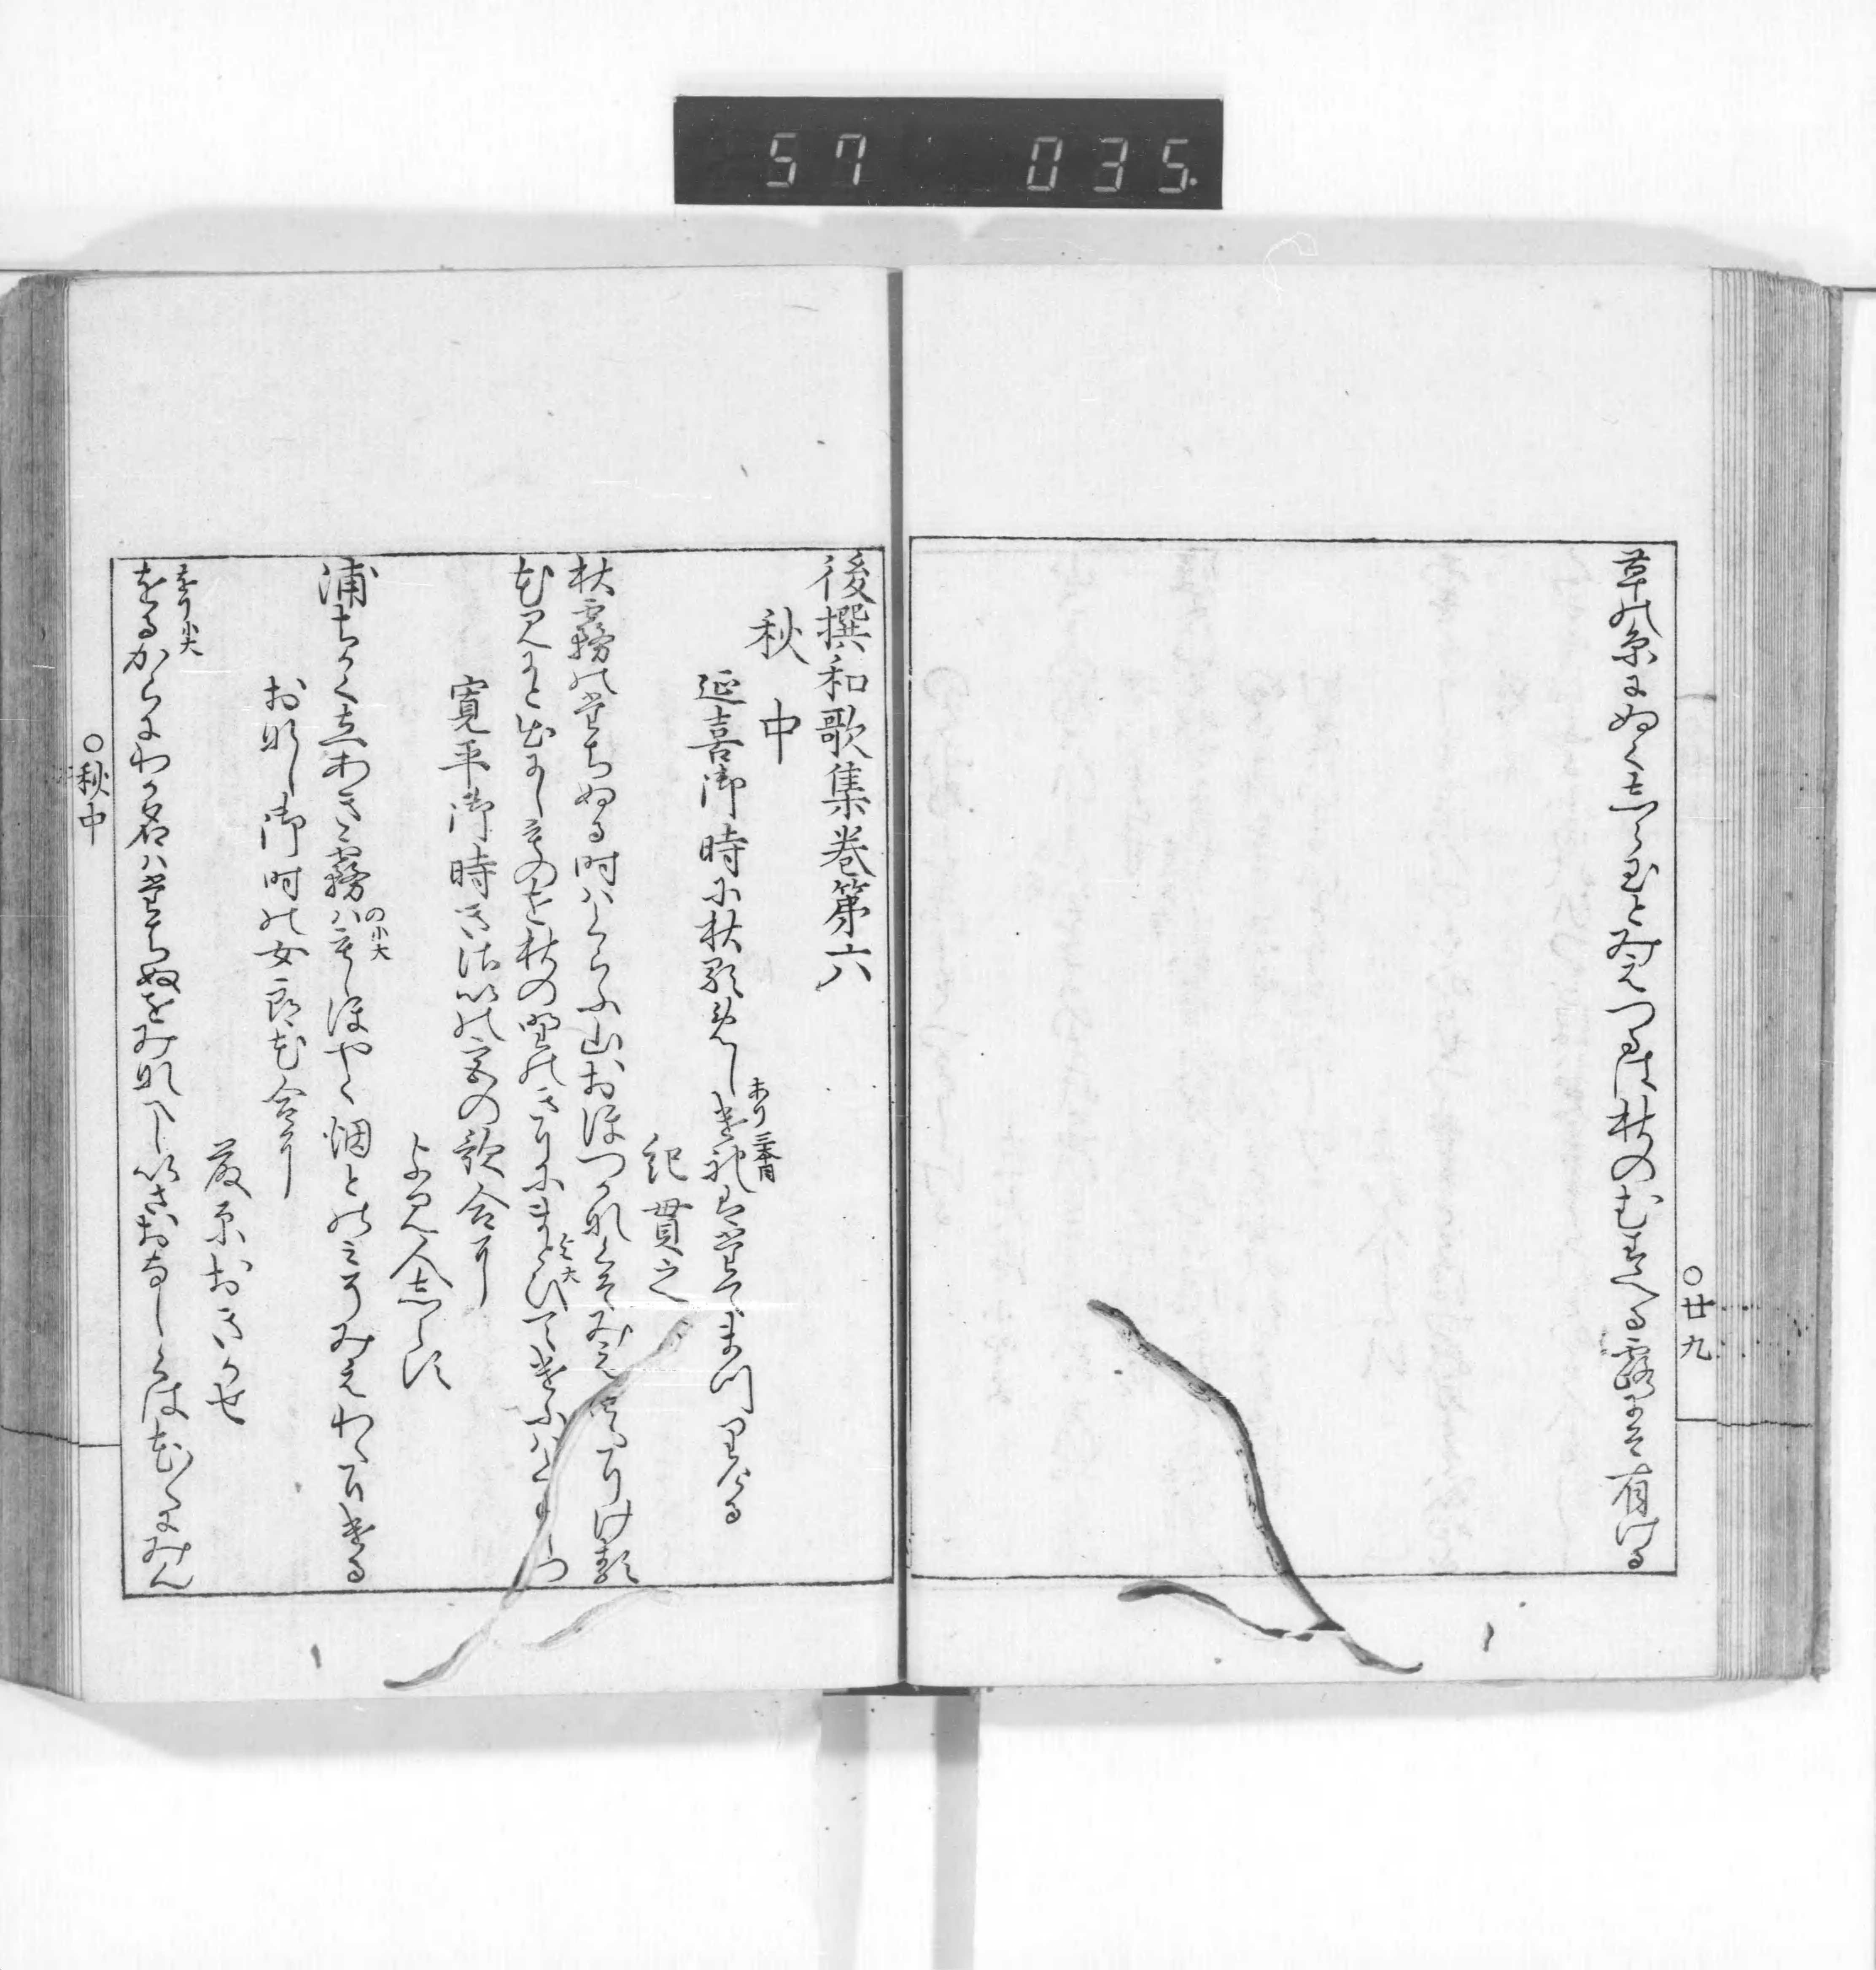 57 035.
草の糸にぬく志ら玉とみえつるは秋のむすへる露にそ有ける
○廿九
後撰和歌集巻第六
秋中
延喜御時に秋歌めしけれはたてまつりける
あり三本同
紀貫之
秋霧のたちぬる時はくらふ山おほつかなくそみえわたりける
花見にと出にしものを秋の野のきりにまとひてけふはくらしつ
よ大
寛平御時きさいの宮の歌合に
よみ人志らす
浦ちかく立あきゝ霧はもしほやく烟とのみそみえわたりける
の小大
おなし御時の女郎花合に
藤原おきかせ
をるからにわか名はたちぬをみなへしいさおなしくは花〱にみん
をり小大
○秋中